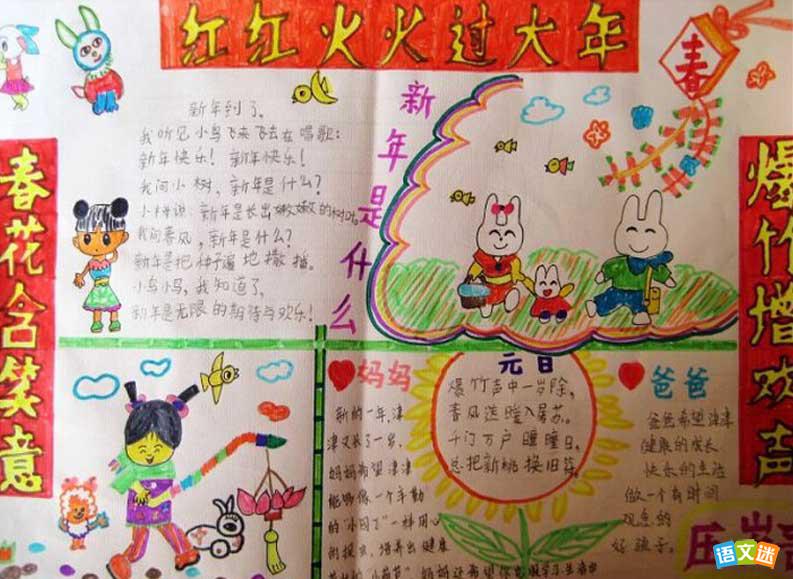 红红火火过大年
春花含笑意
爆竹增欢声
春
新年是什么
新年到了。
我听见小鸟飞来飞去在唱歌：
新年快乐！新年快乐！
我问小树，新年是什么？
小树说：新年是长出嫩嫩的树叶。
我问春风，新年是什么？
新年是把种子遍地撒播。
小鸟小鸟，我知道了，
新年是无限的期待与欢乐！
妈妈
新的一年，津
津又长了一岁，
妈妈希望津津
能够像一个辛勤
的"小园丁"一样用心
元日
爆竹声中一岁除，
春风送暖入屠苏。
千门万户曈曈日，
总把新桃换旧符。
爸爸
爸爸希望津津
健康的成长
快乐的生活
做一个有时间
观念的
好孩子。
压岁
语文迷